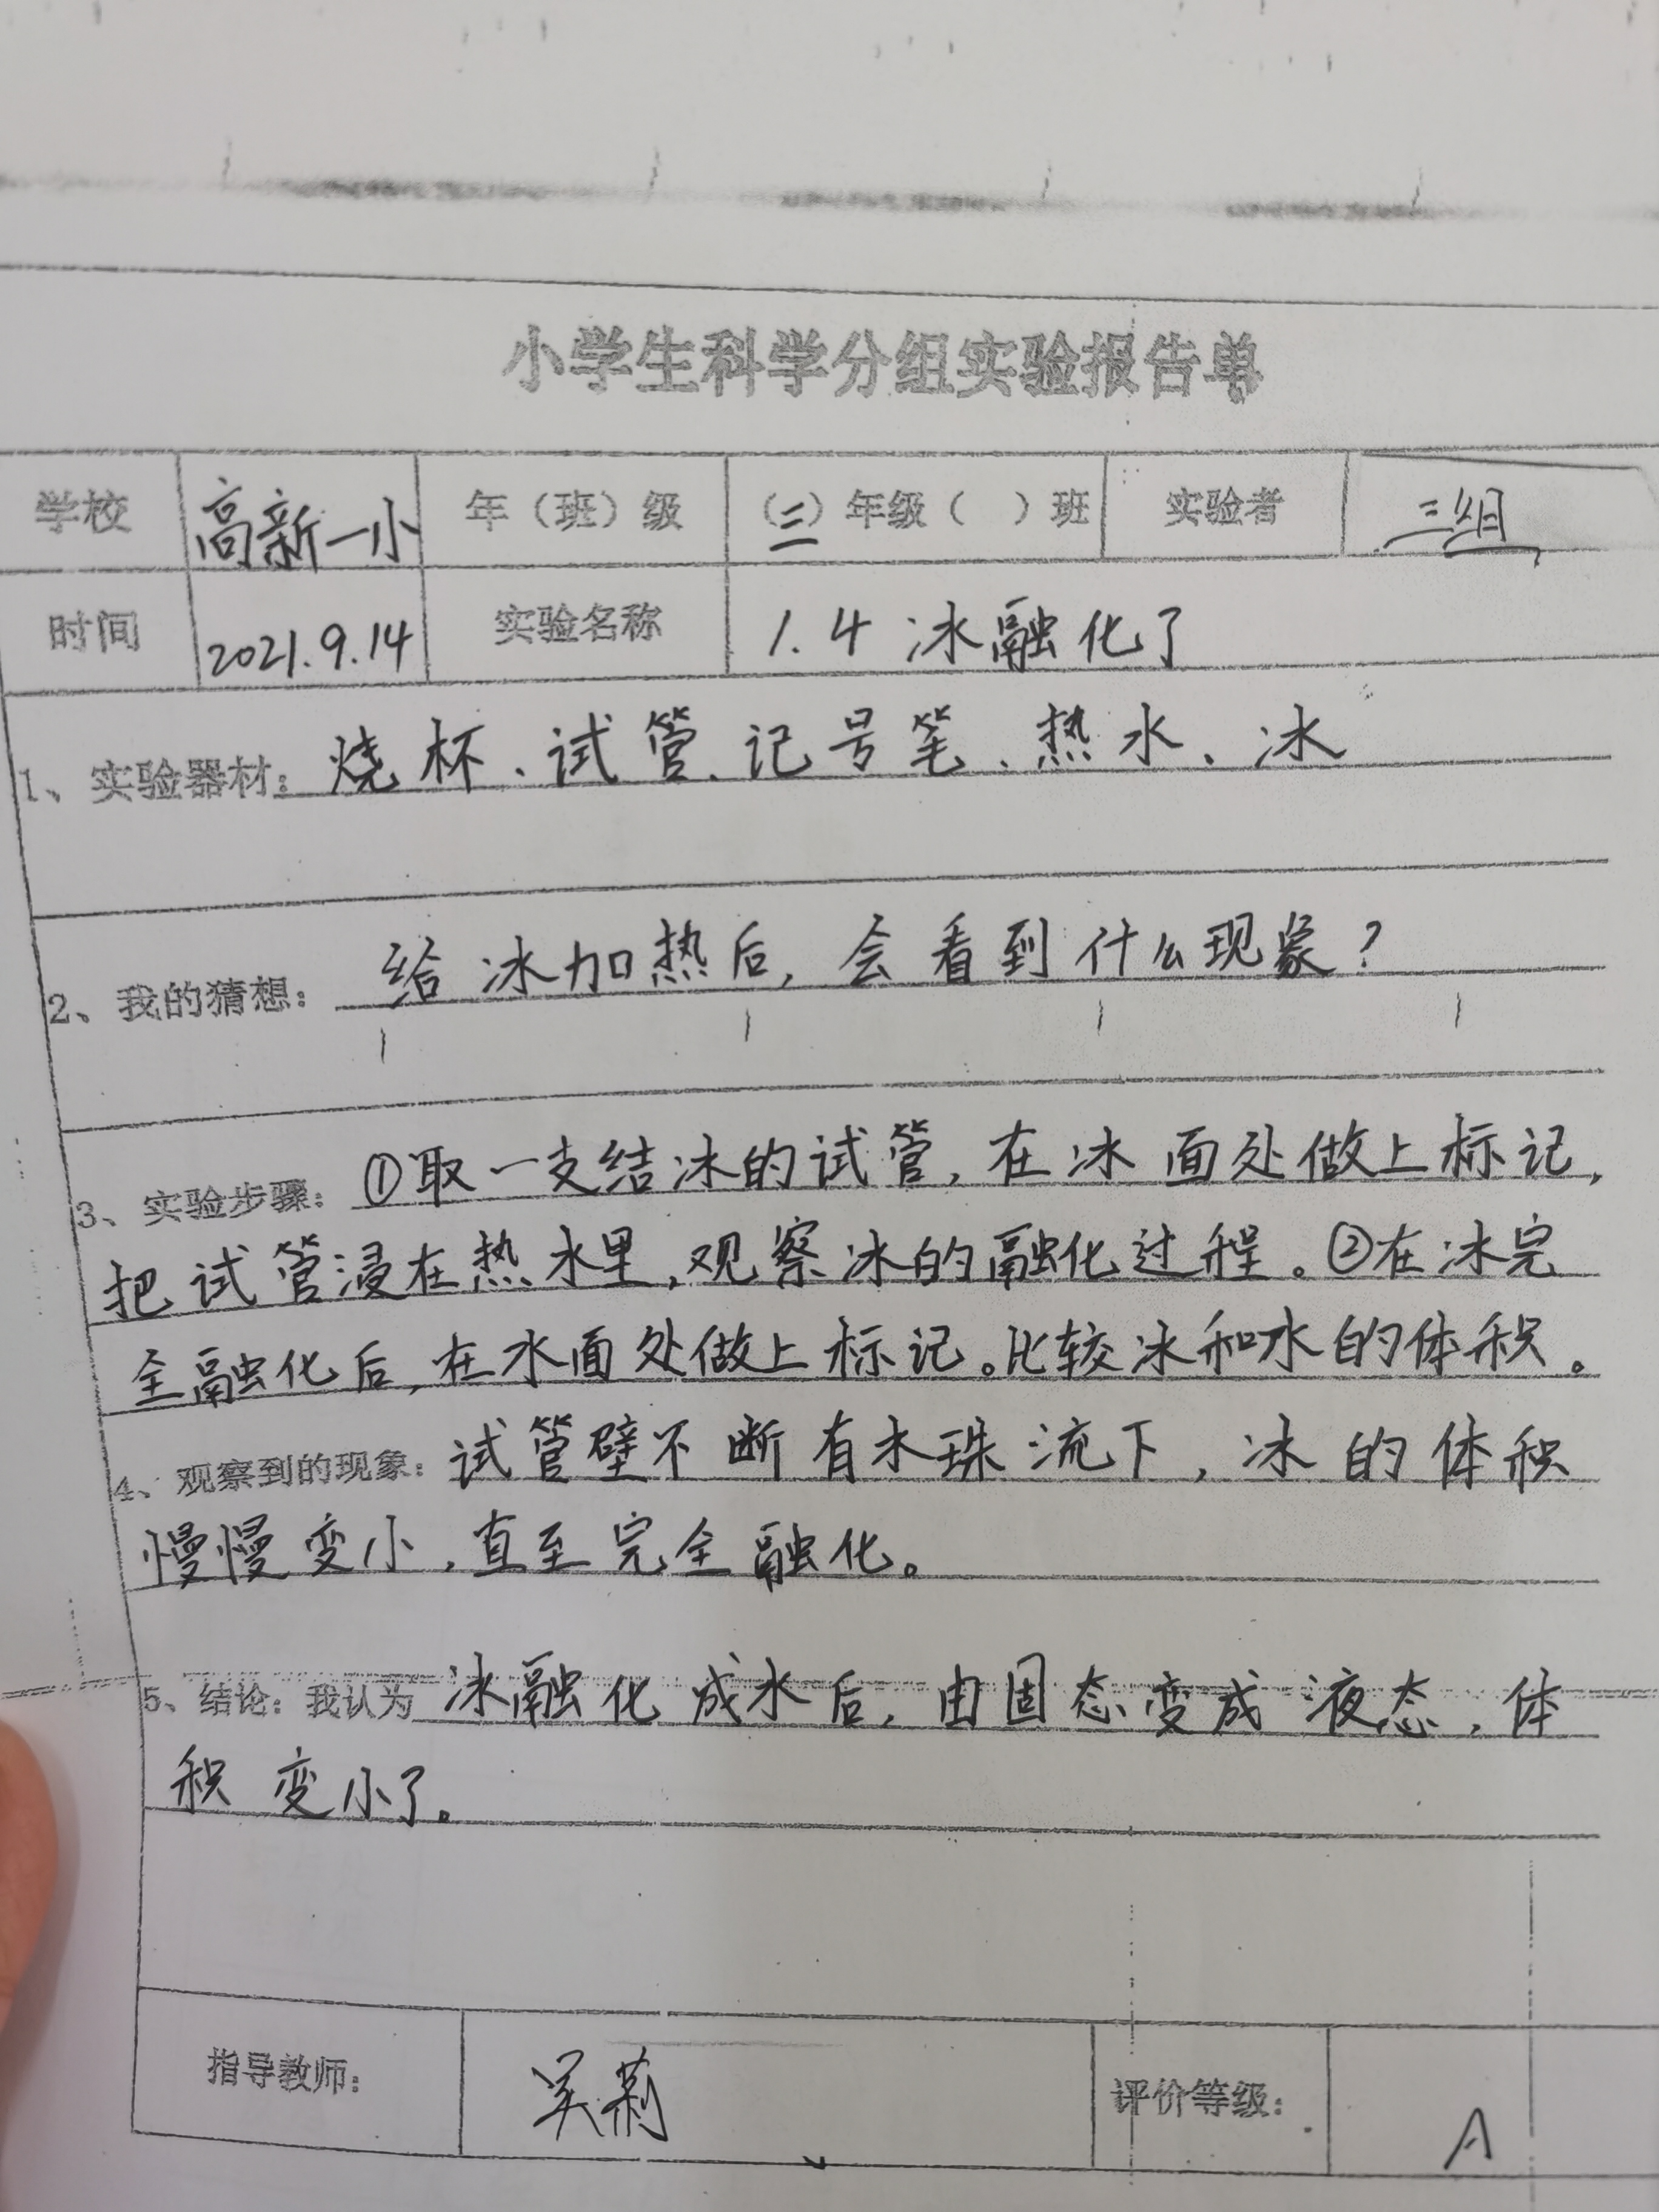 小学生科学分组实验报告单
学校 高新一小 年（班）级 （三）年级（ ）班 实验者 三组
时间 2021.9.14 实验名称 1.4 冰融化了
1、实验器材：烧杯、试管、记号笔、热水、冰
2、我的猜想：给冰加热后，会看到什么现象？
3、实验步骤：①取一支结冰的试管，在冰面处做上标记，
把试管浸在热水里，观察冰的融化过程。②在冰完
全融化后，在水面处做上标记。比较冰和水的体积。
4、观察到的现象：试管壁不断有水珠流下，冰的体积
慢慢变小，直至完全融化。
5、结论：我认为 冰融化成水后，由固态变成液态，体
积变小了。
指导教师： 吴莉 评价等级： A